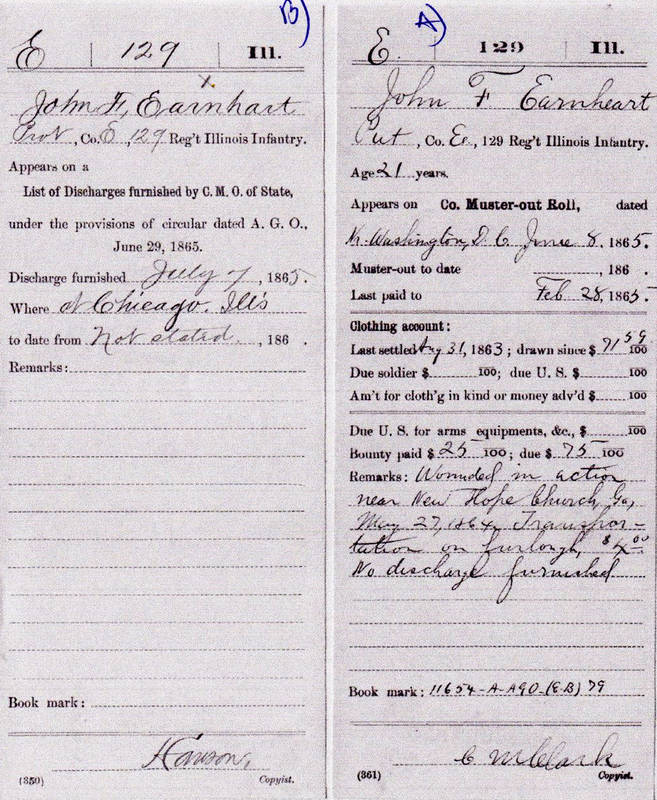 B)
E | 129 | Ill.
x
John F, Earnhart
Prvt, Co. E, 129 Reg't Illinois Infantry.
Appears on a
List of Discharges furnished by C. M. O. of State,
under the provisions of circular dated A. G. O.,
June 29, 1865.
Discharge furnished July 7, 1865.
Where at Chicago. Ills
to date from Not stated., 186 .
Remarks:
Book mark:
(350) Copyist.
A)
E. | 129 | Ill.
John F Earnheart
Pvt, Co. E, 129 Reg't Illinois Infantry.
Age 21 years.
Appears on Co. Muster-out Roll, dated
Nr. Washington, D. C. June 8, 1865.
Muster-out to date , 186 .
Last paid to Feb 28, 1865.
Clothing account:
Last settled Aug 31, 1863; drawn since $ 71 59/100
Due soldier $ 100; due U. S. $ 100
Am't for cloth'g in kind or money adv'd $ 100
Due U. S. for arms equipments, &c., $ 100
Bounty paid $ 25 100; due $ 75 100
Remarks: Wounded in action
near New Hope Church, Ga,
May 27, 1864. Transpor-
tation on furlough, $4 00
No discharge furnished
Book mark: 11654-A-AGO-(E-B) 79
C M Clark
(361) Copyist.